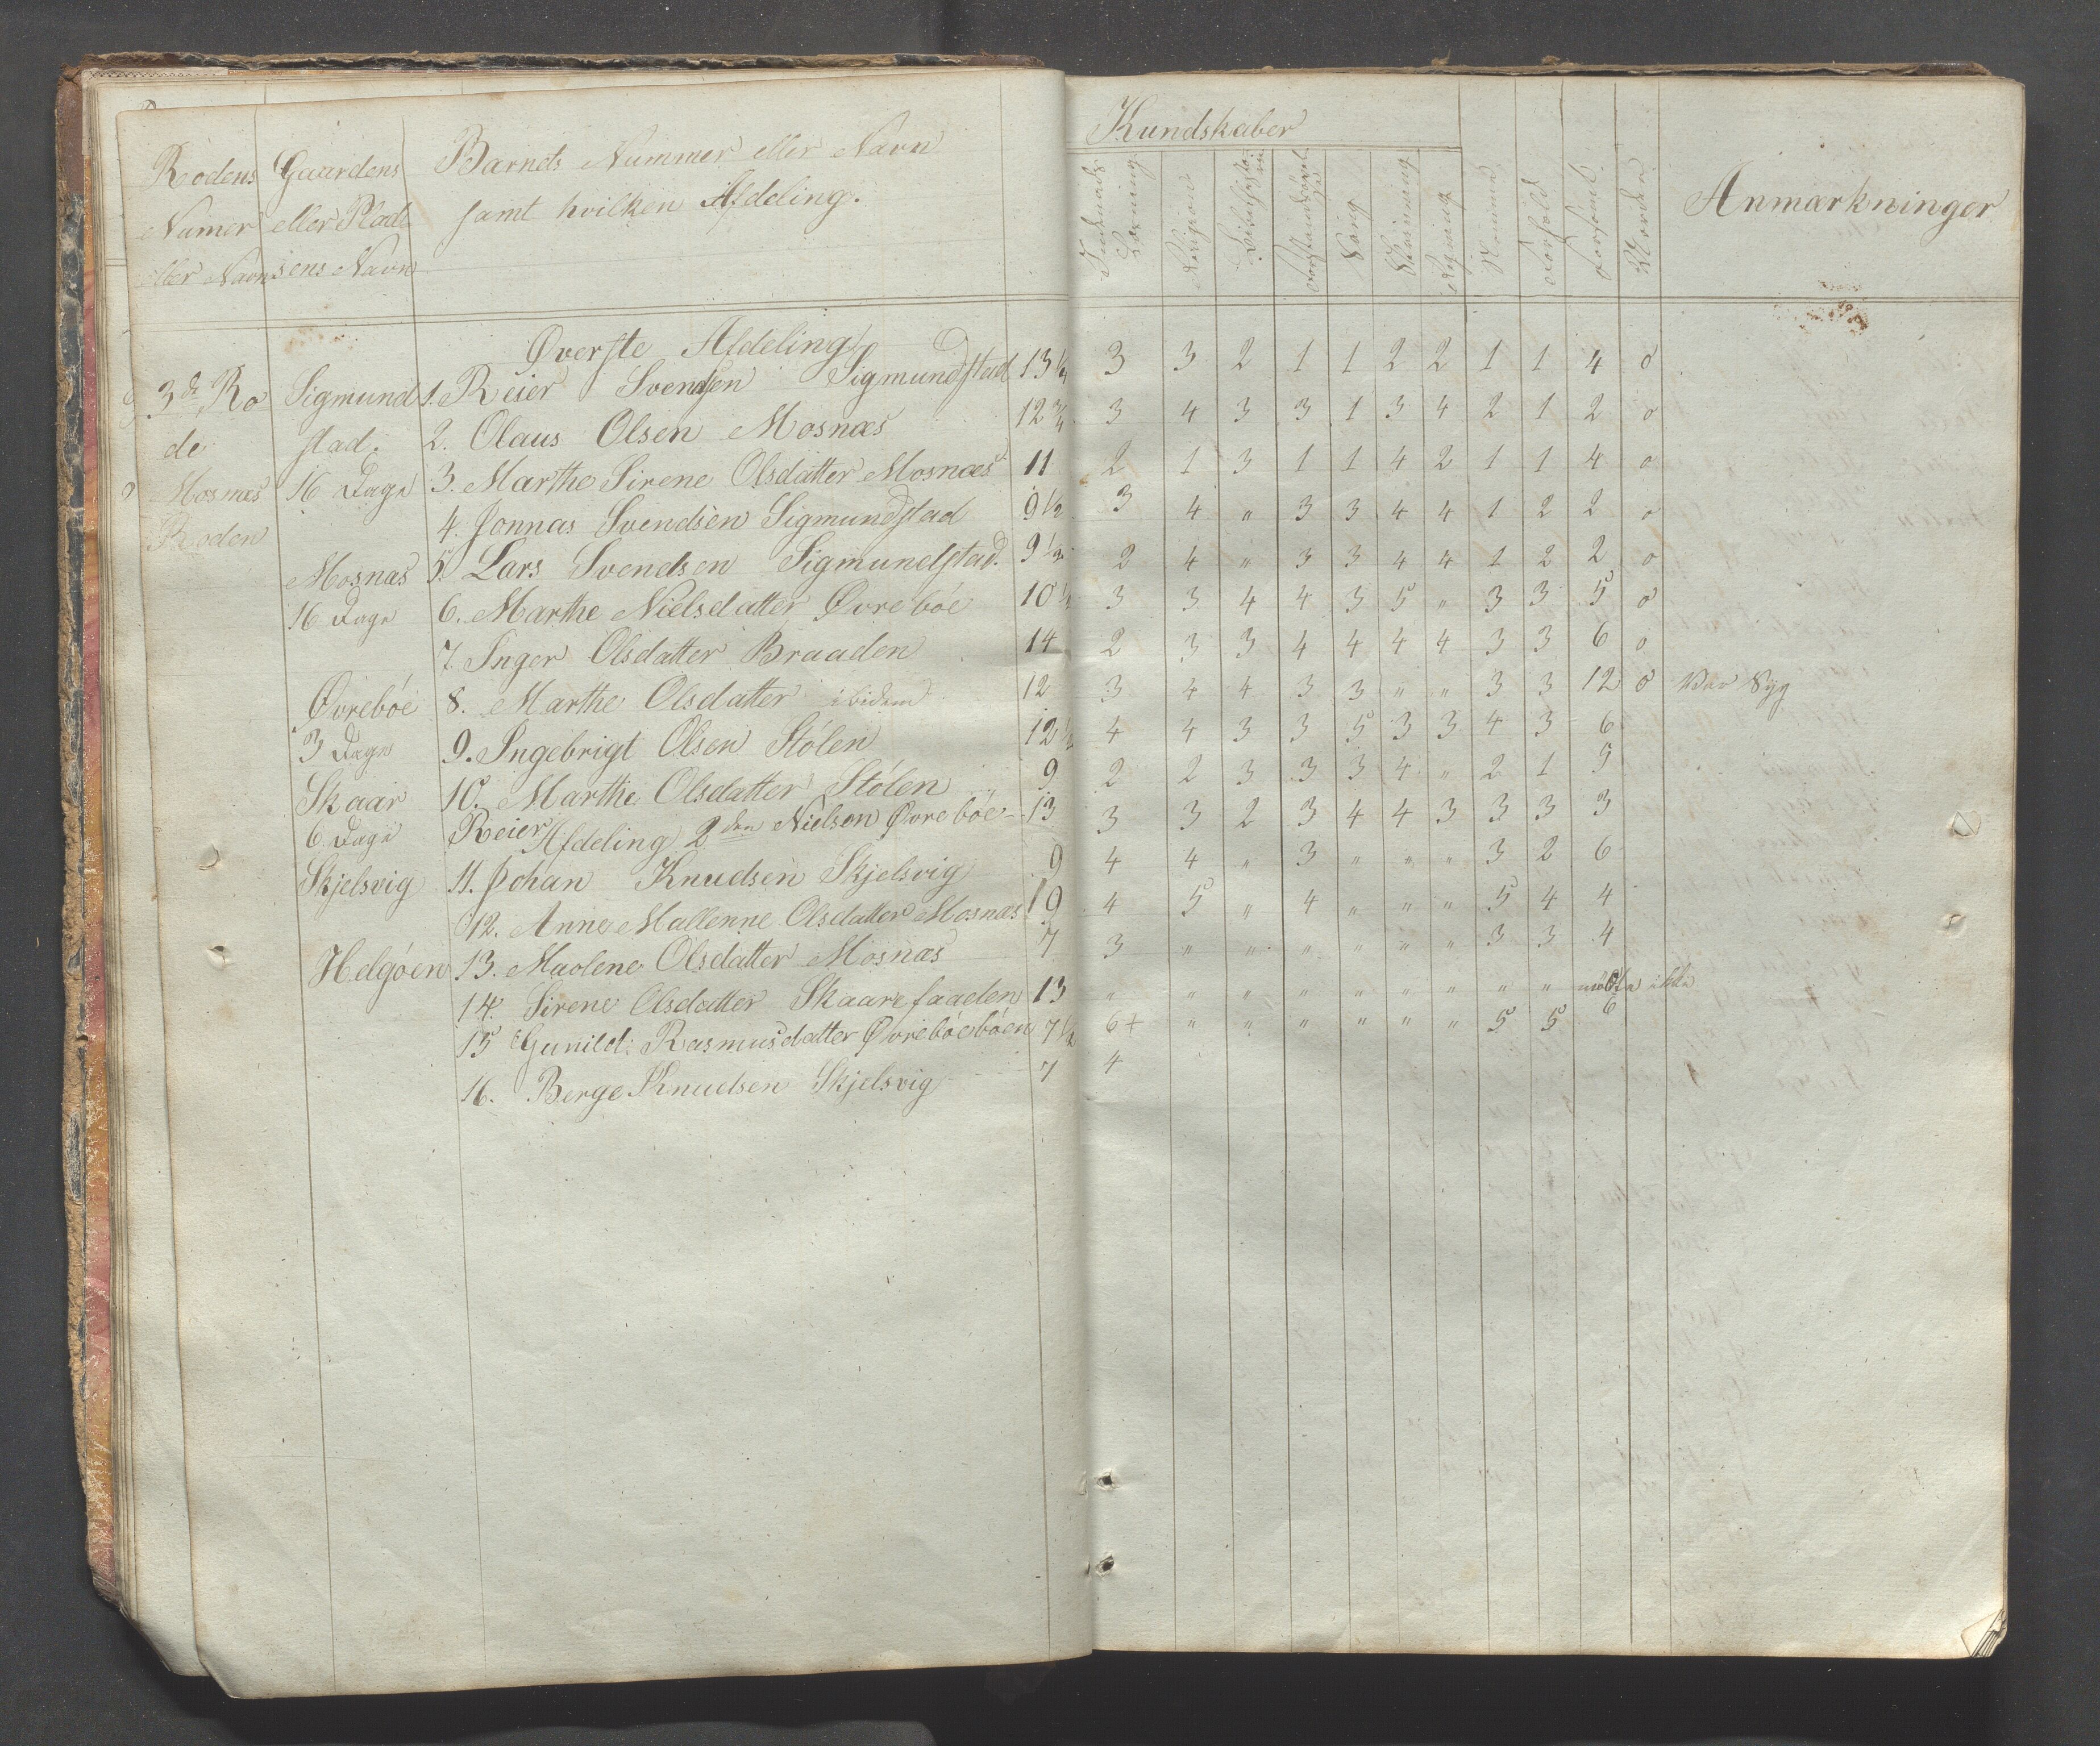 Rodens Guardens Barnets Nummer eller Navn
Numer eller Plad- samt hvilken Afdeling.
eller Navn sens Navn
Kundskaber
Religion Sang Skrivning Regning Nemme Forhold Forsømt Anmærkninger
Øverste Afdeling
3de Ro Sigmund 1. Reier Svendsen Sigmundstad 13 1/4 3 3 2 1 1 2 2 1 1 4 o
de stad. 2. Olaus Olsen Mosnæs 12 3/4 3 4 3 3 1 3 4 2 1 2 o
Mosnæs 16 Dage 3. Marthe Sirene Olsdatter Mosnæs 11 2 1 3 1 1 4 2 1 1 4 o
Roden 4. Jonnas Svendsen Sigmundstad 9 1/2 3 4 " 3 3 4 4 1 2 2 o
Mosnæs 5. Lars Svendsen Sigmundstad. 9 1/2 2 4 " 3 3 4 4 1 2 2 o
16 Dage 6. Marthe Nielsdatter Øvrebóe 10 1/2 3 3 4 4 3 5 " 3 3 5 o
7. Inger Olsdatter Braaden 14 2 3 3 4 4 4 4 3 3 6 o
Øvrebóe 8. Marthe Olsdatter ibidem 12 3 4 4 3 3 " " 3 3 12 o Var Syg
3 Dage 9. Ingebrigt Olsen Stólen 12 1/2 4 4 3 3 5 3 3 4 3 6
Skaar 10. Marthe Olsdatter Stólen 9 2 2 3 3 3 4 " 2 1 5
6 Dage Reier Nielsen Øvrebóe - 13 3 3 2 3 4 4 3 3 3 3
Afdeling 2den
Skjelsvig 11. Johan Knudsen Skjelsvig 9 4 4 " 3 " " " 3 2 6
12. Anne Mallenne Olsdatter Mosnæs 9 4 5 " 4 " " " 5 4 4
Helgóen 13. Maolene Olsdatter Mosnæs 7 3 " " " " " " 3 3 4
14. Sirene Olsdatter Skaarefaaden 13 " " " " " " " " " mødte ikke
15 Gunild: Rasmusdatter Øvrebóebóen 7 1/2 6+ " " " " " " 5 5 6
16. Berge Knudsen Skjelsvig 7 4